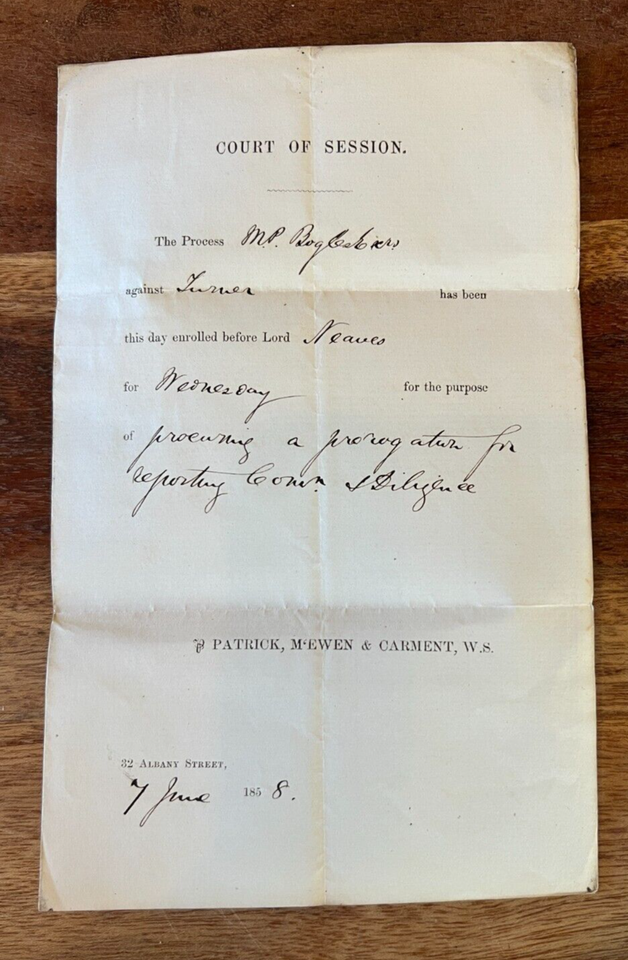 COURT OF SESSION.
The Process M.P. Bogle's
against Turner has been
this day enrolled before Lord Neaves
for Wednesday for the purpose
of procuring a prorogation for
reporting Comn. & Diligence
PATRICK, McEWEN & CARMENT, W.S.
32 ALBANY STREET,
7 June 1858.